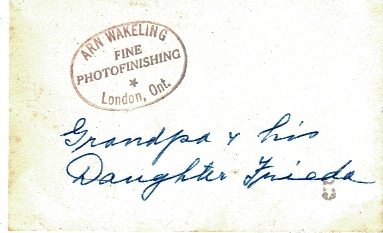 ARN WAKELING
FINE
PHOTOFINISHING
*
London, Ont.
Grandpa & his
Daughter Frieda